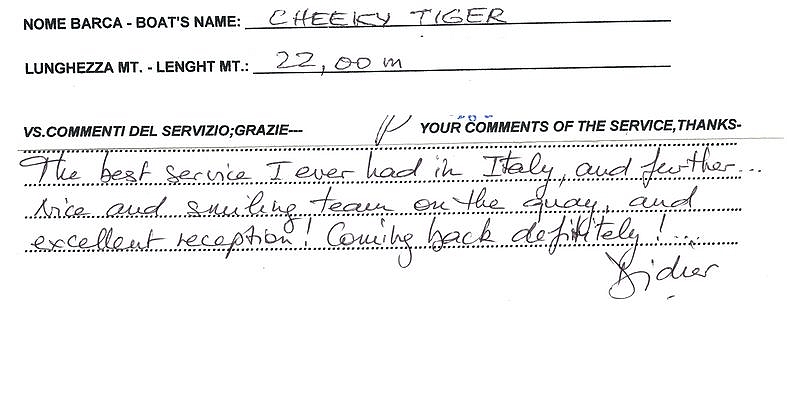 NOME BARCA - BOAT'S NAME: CHEEKY TIGER
LUNGHEZZA MT. - LENGHT MT.: 22,00 m
VS.COMMENTI DEL SERVIZIO;GRAZIE--- YOUR COMMENTS OF THE SERVICE,THANKS-
The best service I ever had in Italy, and further...
nice and smiling team on the quay, and
excellent reception! Coming back definitely!...
Didier